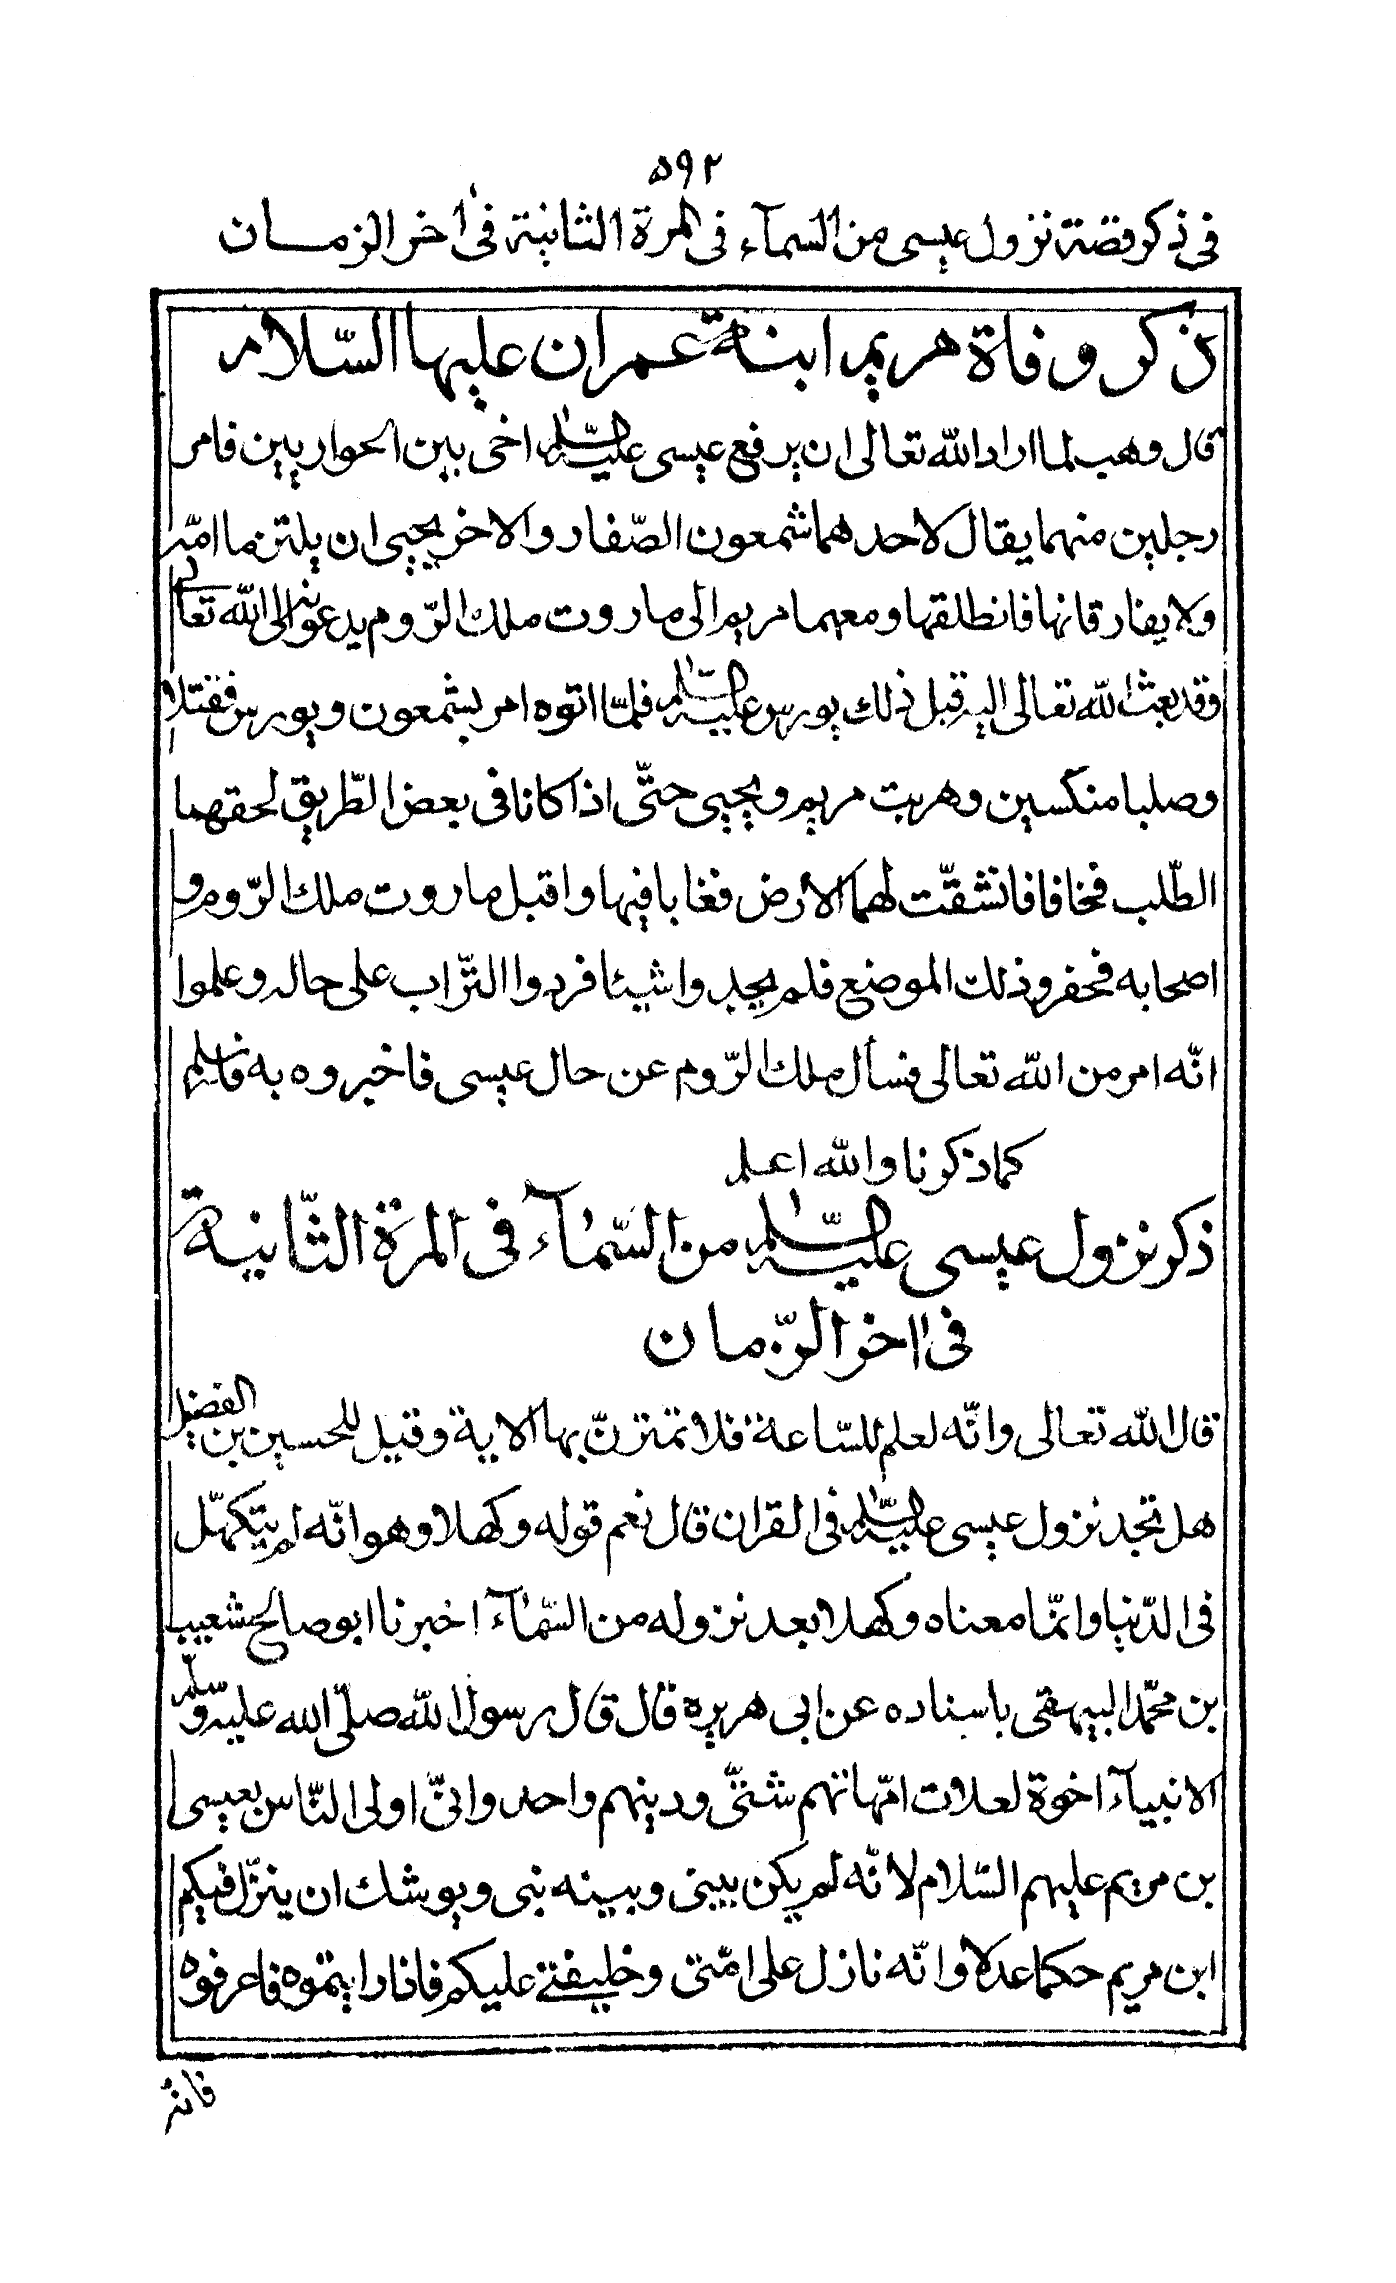 ۵۹۲
فى ذكر قصة نزول عيسى من السمآء فى المرة الثانية فى اخر الزمان
ذكر وفاة مريم ابنة عمران عليها السّلام
قال وهب لما اراد الله تعالى ان يرفع عيسى عليه السّلام اخى بين الحواريين فامر
رجلين منهما يقال لاحدهما شمعون الصّفار والاخر يحيى ان يلتزما امّه
ولا يفارقانها فانطلقها ومعهما مريم الى ماروت ملك الرّوم يدعونه الى الله تعالى
وقد بعث الله تعالى اليه قبل ذلك يورس عليه السّلام فلمّا اتوه امر بشمعون ويورس فقتلا
وصلبا منكسين وهربت مريم ويحيى حتّى اذا كانا فى بعض الطّريق لحقهما
الطّلب فخافا فانشقّت لهما الارض فغابا فيها واقبل ماروت ملك الرّوم و
اصحابه فحفرو ذلك الموضع فلم يجدوا شيئا فردوا التّراب على حاله وعلموا
انّه امر من الله تعالى فسأل ملك الرّوم عن حال عيسى فاخبروه به فاسلم
كما ذكرنا والله اعلم
ذكر نزول عيسى عليه السّلام من السّمآء فى المرة الثّانية
فى اخر الزّمان
قال الله تعالى وانّه لعلم للسّاعة فلا تمترنّ بها الاية وقيل للحسين بن الفضل
هل تجد نزول عيسى عليه السّلام فى القران قال نعم قوله وكهلا وهو انّه لم يتكهّل
فى الدّنيا وانّما معناه وكهلا بعد نزوله من السّمآء اخبرنا ابو صالح شعيب
بن محمّد البيهقى باسناده عن ابى هريره قال قال رسول الله صلّى الله عليه وسلّم
الانبيآء اخوة لعلات امّهاتهم شتّى ودينهم واحد وانّى اولى النّاس بعيسى
بن مريم عليهم السّلام لانّه لم يكن بينى وبينه نبى ويوشك ان ينزّل فيكم
ابن مريم حكما عدلا وانّه نازل على امّتى وخليفتى عليكم فاذا رايتموه فاعرفوه
فانّه